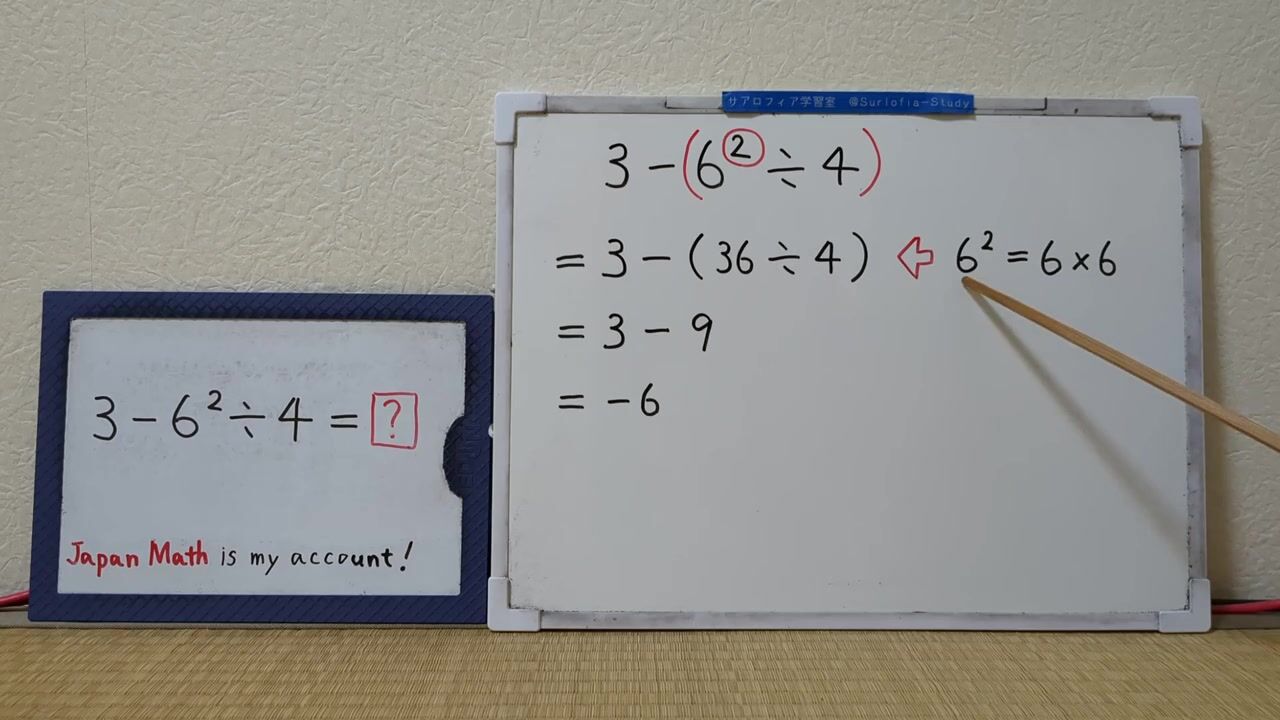 3-6²÷4=?
Japan Math is my account!
サアロフィア学習室 @Surlofia-Study
3-(6²÷4)
=3-(36÷4) ⇦ 6²=6×6
=3-9
=-6